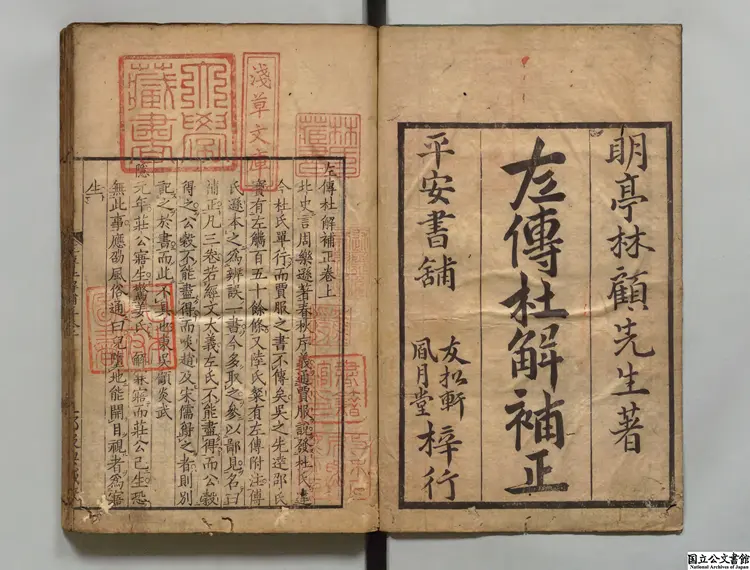 亭林顧先生著
左傳杜解補正
平安書舖
友松軒
風月堂
梓行
淺草文庫
大學藏書
左傳杜解補正卷上
北史言周樂遜著春秋序義通賈服說發杜氏違
今杜氏單行而賈服之書不傳矣吳之先達邵氏
寶有左觿百五十餘條又陸氏粲有左傳附注傅
氏遜本之為辨誤一書今多取之參以鄙見名曰
補正凡三卷若經文大義左氏不能盡得而公穀
得之公穀不能盡得而啖趙及宋儒得之者則別
記之於書而此不具也東吳顧炎武
隱元年莊公寤生驚姜氏解寐寤而莊公已生恐
無此事應劭風俗通曰兒墮地能開目視者為寤
生
国立公文書館
National Archives of Japan